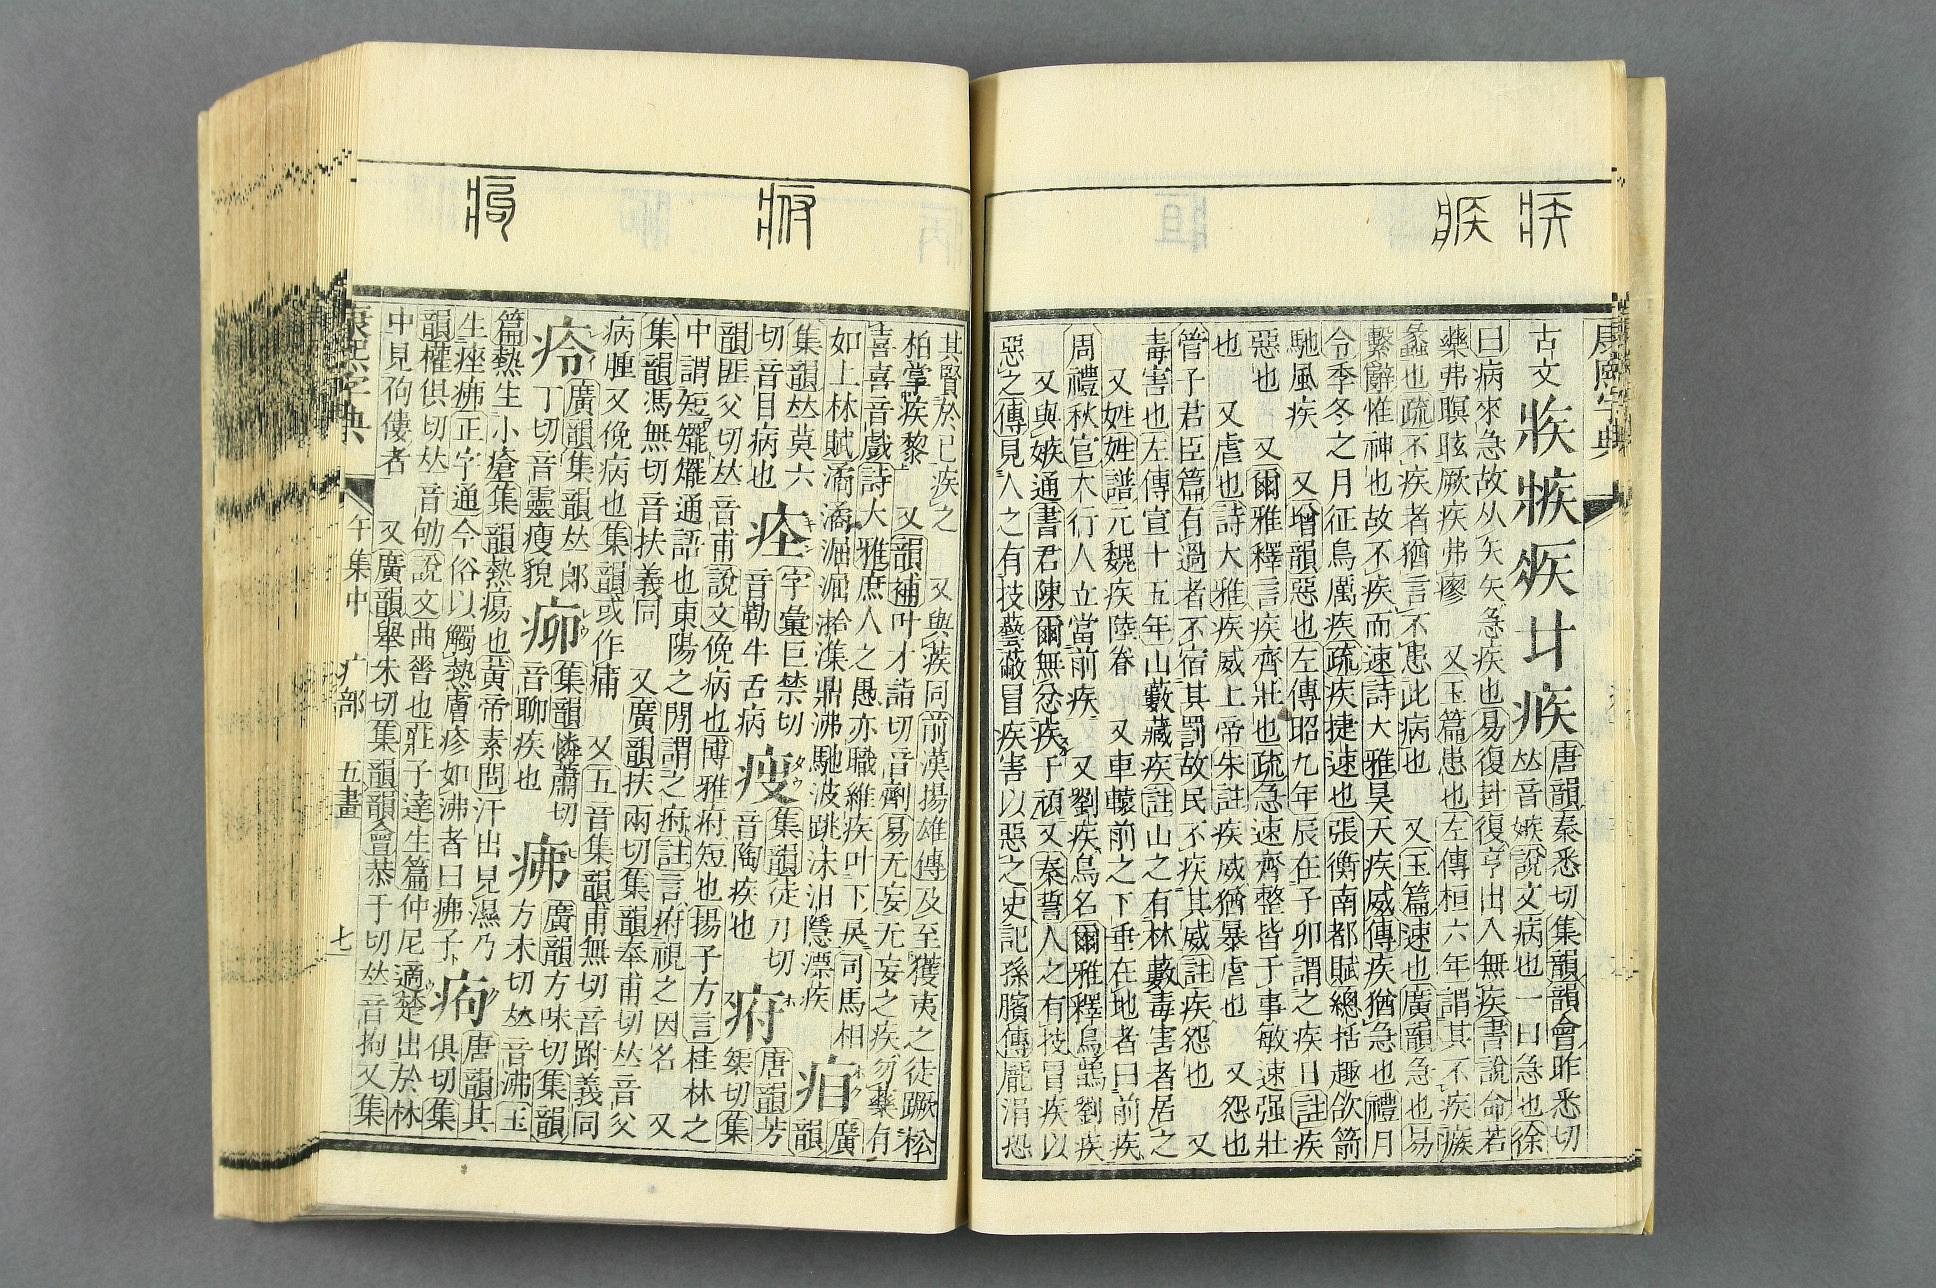 康熙字典
古文 廿 疾 唐韻秦悉切集韻韻會昨悉切
𠀤音嫉說文病也一曰急也徐
曰病來急故从矢矢急疾也易復卦復亨出入無疾書說命若
藥弗瞑眩厥疾弗瘳 又玉篇患也左傳桓六年謂其不疾瘯
蠡也疏不疾者猶言不患此病也 又玉篇速也廣韻急也易
繫辭惟神也故不疾而速詩大雅昊天疾威傳疾猶急也禮月
令季冬之月征鳥厲疾疏疾捷速也張衡南都賦總括趣欱箭
馳風疾 又增韻惡也左傳昭九年辰在子卯謂之疾日註疾
惡也 又爾雅釋言疾齊壯也疏急速齊整皆于事敏速强壯
也 又虐也詩大雅疾威上帝朱註疾威猶暴虐也 又怨也
管子君臣篇有過者不宿其罰故民不疾其威註疾怨也 又
毒害也左傳宣十五年山藪藏疾註山之有林藪毒害者居之
又姓姓譜元魏疾陸眷 又車轅前之下垂在地者曰前疾
周禮秋官大行人立當前疾 又劉疾鳥名爾雅釋鳥鶛劉疾
又與嫉通書君陳爾無忿疾于頑又秦誓人之有技冒疾以
惡之傳見人之有技藝蔽冒疾害以惡之史記孫臏傳龐涓恐
其賢於已疾之 又與蒺同前漢揚雄傳及至獲夷之徒蹶松
柏掌疾黎 又韻補叶才詣切音劑易无妄无妄之疾勿藥有
喜喜音戲詩大雅庶人之愚亦職維疾叶下戾司馬相
如上林賦滀滀淈淈湁潗鼎沸馳波跳沫汩隱漂疾 廣韻
集韻𠀤莫六切音目病也 字彙巨禁切音勒牛舌病 集韻徒刀切音陶疾也 府 唐韻芳榘切集
韻匪父切𠀤音甫說文俛病也博雅府短也揚子方言桂林之
中謂短矲矲通語也東陽之閒謂之府註言府視之因名 又
集韻馮無切音扶義同 又廣韻扶兩切集韻奉甫切𠀤音父
病腫又俛病也集韻或作痡 又五音集韻甫無切音跗義同
㾉 廣韻集韻𠀤郎丁切音靈瘦貌 集韻憐蕭切音聊疾也 疿 廣韻方味切集韻方未切𠀤音沸玉
篇熱生小瘡集韻熱瘍也黃帝素問汗出見濕乃
生痤疿正字通今俗以觸熱膚疹如沸者曰疿子 痀 唐韻其俱切集
韻權俱切𠀤音劬說文曲脊也莊子達生篇仲尼適楚出於林
中見痀僂者 又廣韻舉朱切集韻韻會恭于切𠀤音拘又集
康熙字典 午集中 疒部 五畫 七